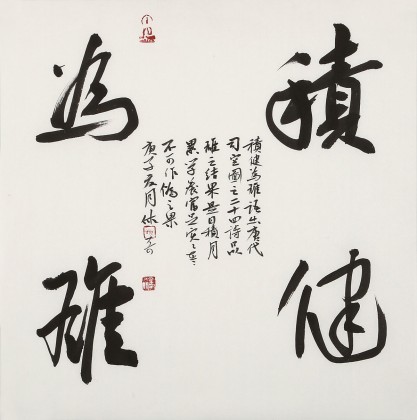 積健
為雄
積健為雄語出唐代
司空圖之二十四詩品
雄之結果是日積月
累学養富足实之
不可作偽之果
庚子月